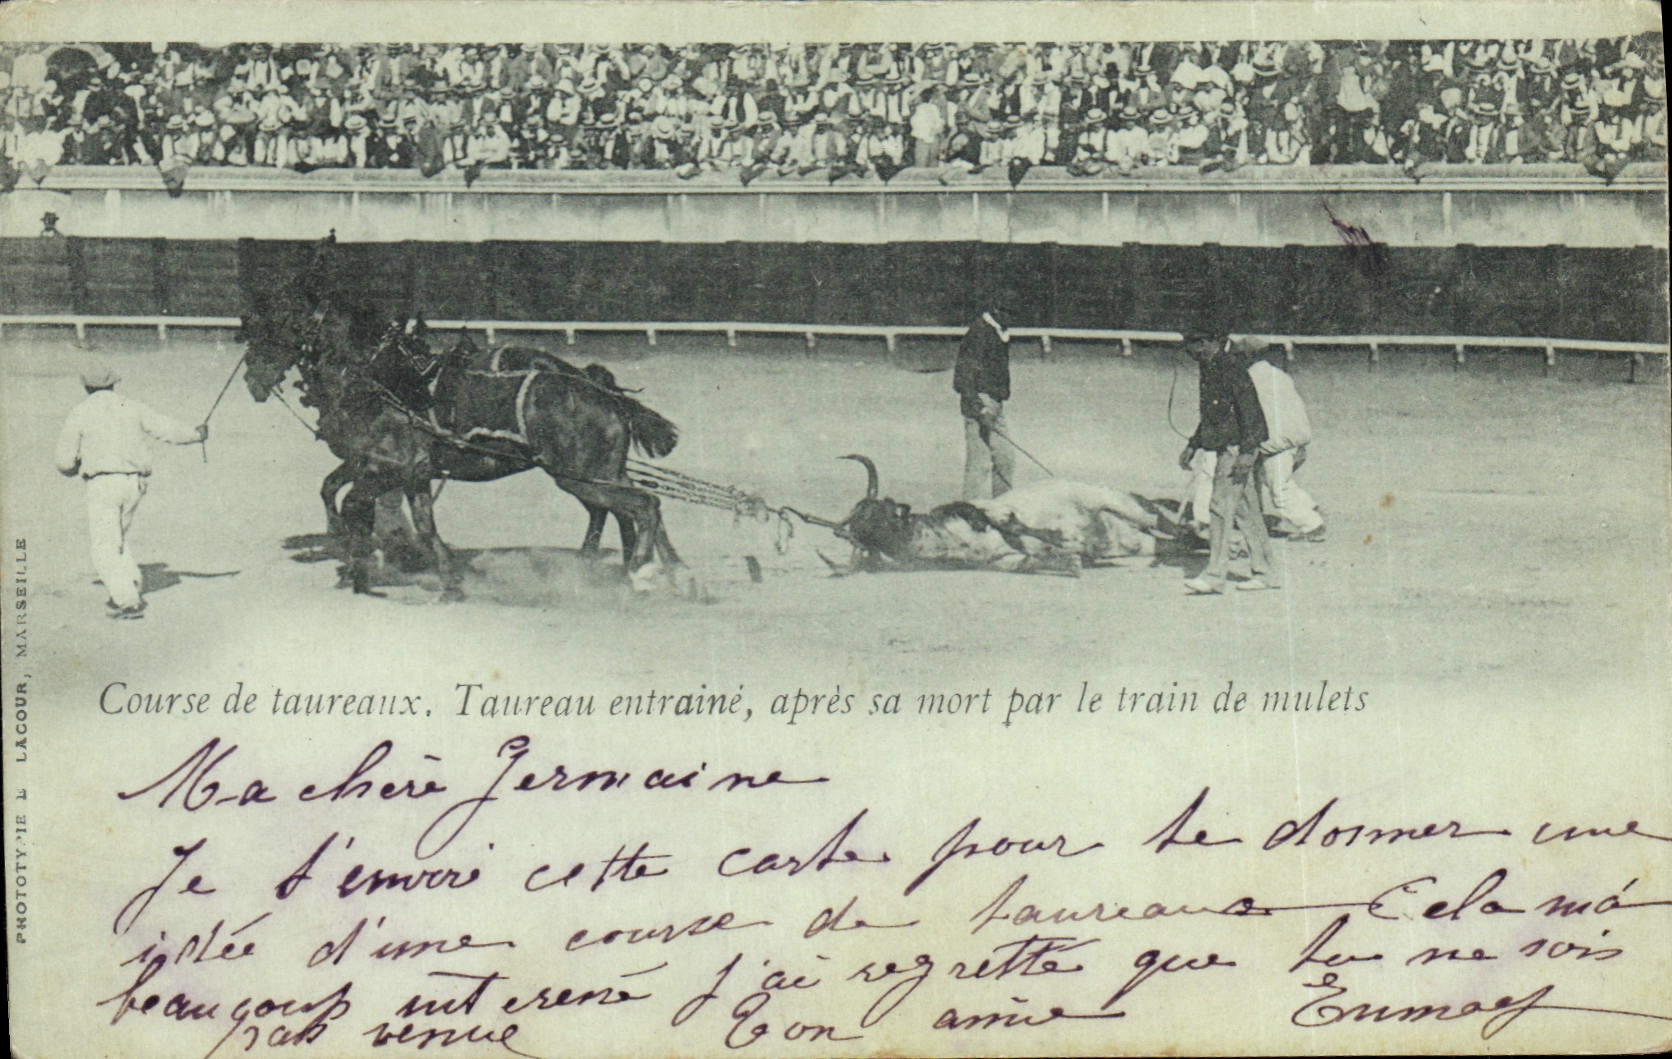 Course de taureaux. Taureau entrainé, après sa mort par le train de mulets
Ma chère Germaine
Je t'envoi cette carte pour te donner une
idée d'une course de taureaux Cela m'a
beaucoup intéressé j'ai regretté que tu ne sois
pas venue Ton amie
PHOTOTYPIE LACOUR, MARSEILLE